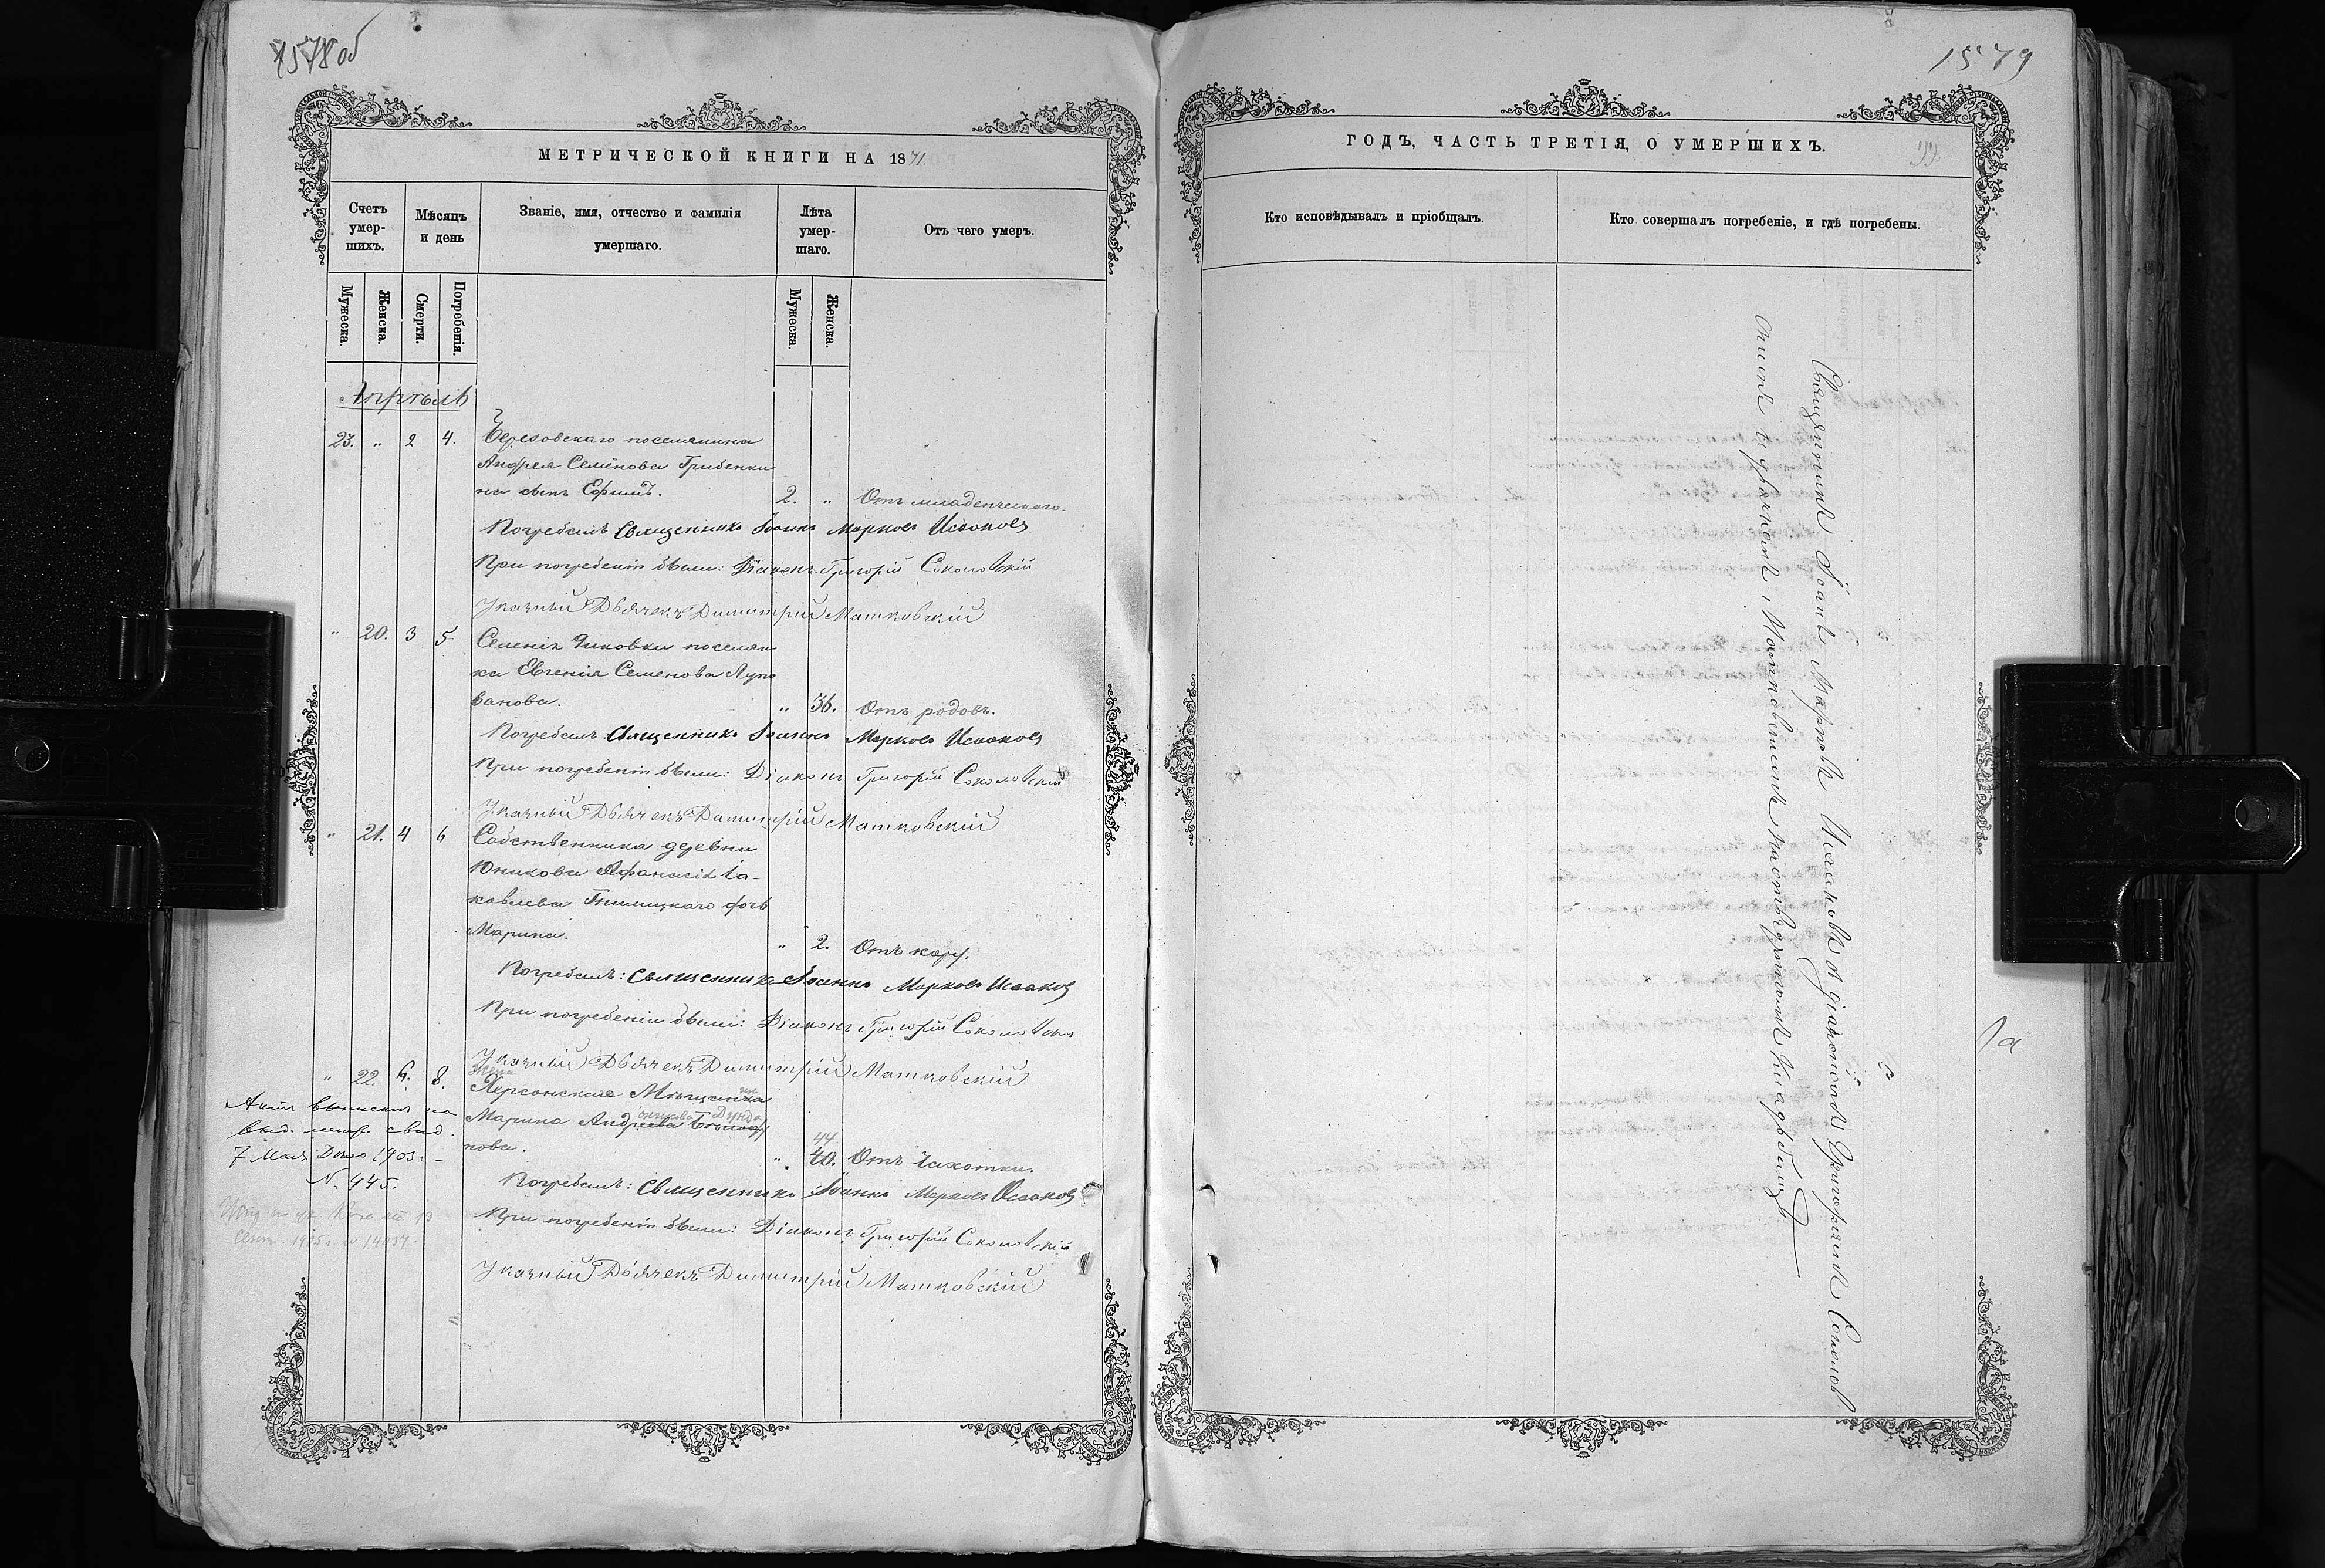 1578 об
МЕТРИЧЕСКОЙ КНИГИ НА 1871
Счетъ умер-шихъ.
Мѣсяцъ и день
Званіе, имя, отчество и фамилія умершаго.
Лѣта умер-шаго.
Отъ чего умеръ.
Мужеска.
Женска.
Смерти.
Погребенія.
Мужеска.
Женска.
Апрѣль
23. „ 2 4. Березовскаго поселянина
Андрея Семёнова Грибенки
на сынъ Ефимъ. 2. „ Отъ младенческаго.
Погребалъ Священникъ Іоаннъ Марковъ Исааковъ
При погребеніи были: Діаконъ Григорій Соколовскій
Указный Дьячекъ Димитрій Матковскій
„ 20. 3 5 Селенія поселян
ка Евгенія Семенова Луп
ванова. „ 36. Отъ родовъ.
Погребалъ Священникъ Іоаннъ Марковъ Исааковъ
При погребеніи были: Діаконъ Григорій Соколовскій
Указный Дьячекъ Димитрій Матковскій
„ 21. 4 6 Собственника деревни
Юникова Афанасія Іа-
ковлева Гнилицкаго дочь
Марина. „ 2. Отъ кори.
Погребалъ: Священникъ Іоаннъ Марковъ Исааковъ
При погребеніи были: Діаконъ Григорій Соколовск
Указный Дьячекъ Димитрій Матковскій
жена
„ 22. 6. 8. Херсонская Мѣщанка
Марина Андреева
нова. 44 „ 40. Отъ чахотки.
Погребалъ: Священникъ Іоаннъ Марковъ Исааковъ
При погребеніи были: Діаконъ Григорій Соколовскій
Указный Дьячекъ Димитрій Матковскій
Актъ выписанъ на
выд. метр. свид.
7 Мая Дѣло 1903 г.
N. 445.
1579
ГОДЪ, ЧАСТЬ ТРЕТІЯ, О УМЕРШИХЪ.
99
Кто исповѣдывалъ и пріобщалъ.
Кто совершалъ погребеніе, и гдѣ погребены.
Священникъ Іоаннъ Марковъ Исааковъ съ діакономъ Григоріемъ Соколов
скимъ и дьячкомъ Матковскимъ на кладбищѣ